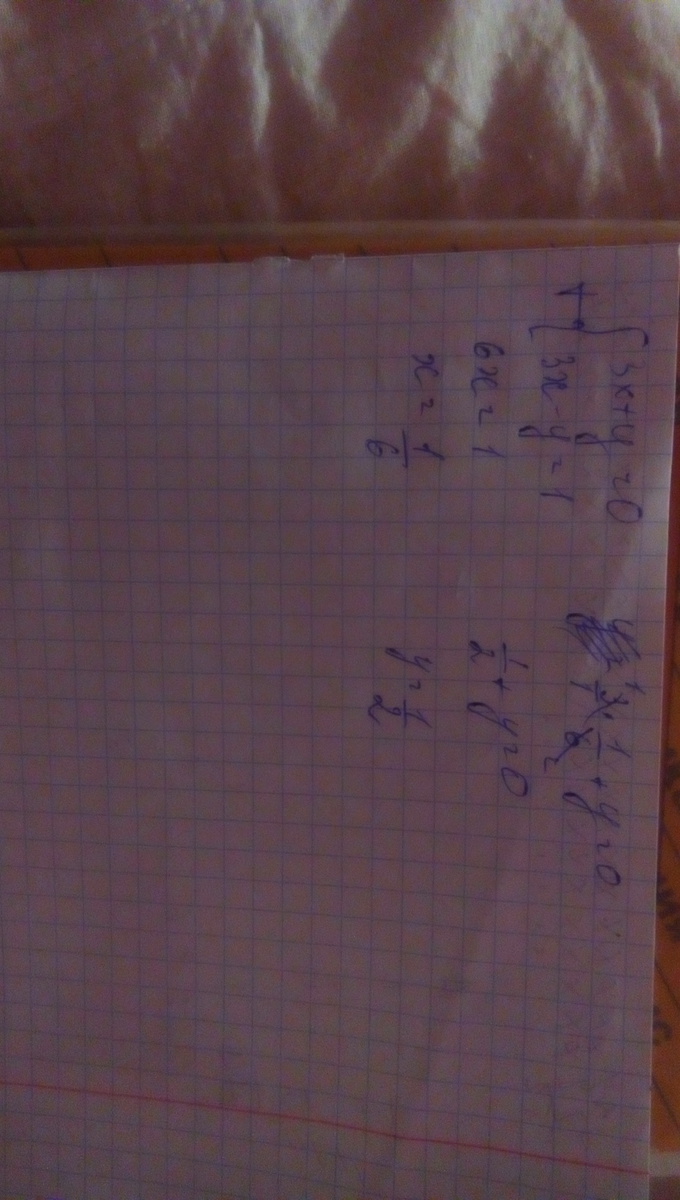 + { 3x + y = 0
3x - y = 1
6x = 1
x = 1/6
3/1 · 1/6 + y = 0
1/2 + y = 0
y = 1/2